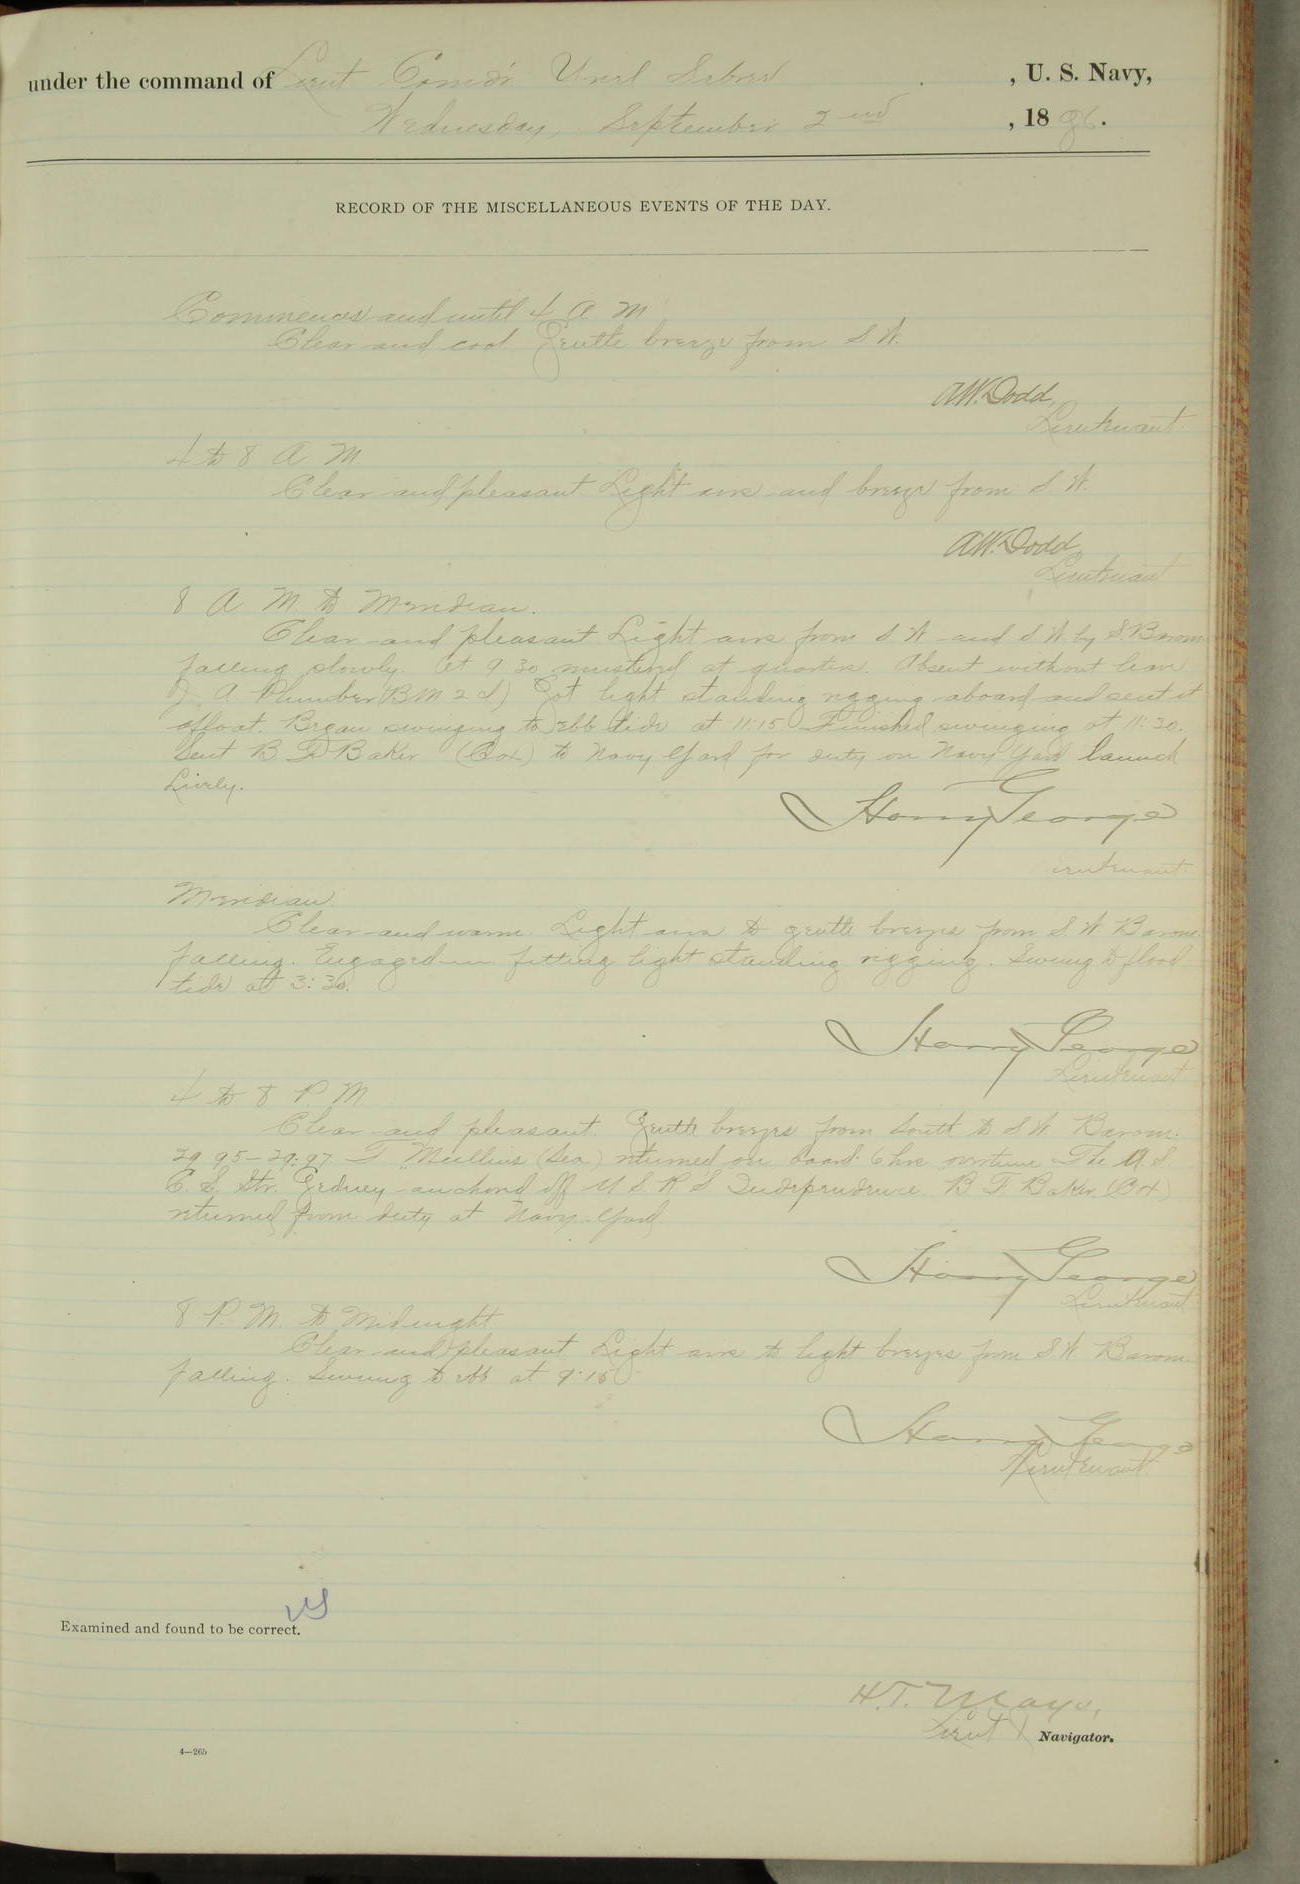 under the command of Lieut Comdr Uriel Sebree , U. S. Navy,
Wednesday, September 2nd , 1896.
RECORD OF THE MISCELLANEOUS EVENTS OF THE DAY.
Commences and until 4 A M
Clear and cool. Gentle breeze from S W.
A.W. Dodd,
Lieutenant.
4 to 8 A M
Clear and pleasant Light airs and breeze from S. W.
A.W. Dodd,
Lieutenant
8 A M to Meridian.
Clear and pleasant Light airs from S W and S W by S. Barom
falling slowly. At 9 30 mustered at quarters. Absent without leave
J. A Plumber (B M 2 cl) Got light standing rigging aboard and sent it
afloat. Began swinging to ebb tide at 11:15 Finished swinging at 11:30.
Sent B F Baker (Cox) to Navy Yard for duty on Navy Yard launch
Lively.
Harry George
Lieutenant
Meridian
Clear and warm. Light airs to gentle breezes from S. W. Barom.
falling. Engaged in fitting light standing rigging. Swung to flood
tide at 3:30.
Harry George
Lieutenant
4 to 8 P. M
Clear and pleasant. Gentle breezes from South to S W. Barom.
29.95-29.97 T Mullins (Sea) returned on board 6 hrs overtime The U.S.
C. S. Str. Gedney anchored off U S R S Independence. B. F. Baker (Cox)
returned from duty at Navy Yard
Harry George
Lieutenant
8 P. M. to Midnight
Clear and pleasant Light airs to light breezes from S W Barom.
falling. Swung to ebb at 9:15
Harry George
Lieutenant
US
Examined and found to be correct.
H.T. Mayo,
Lieut & Navigator.
4—265